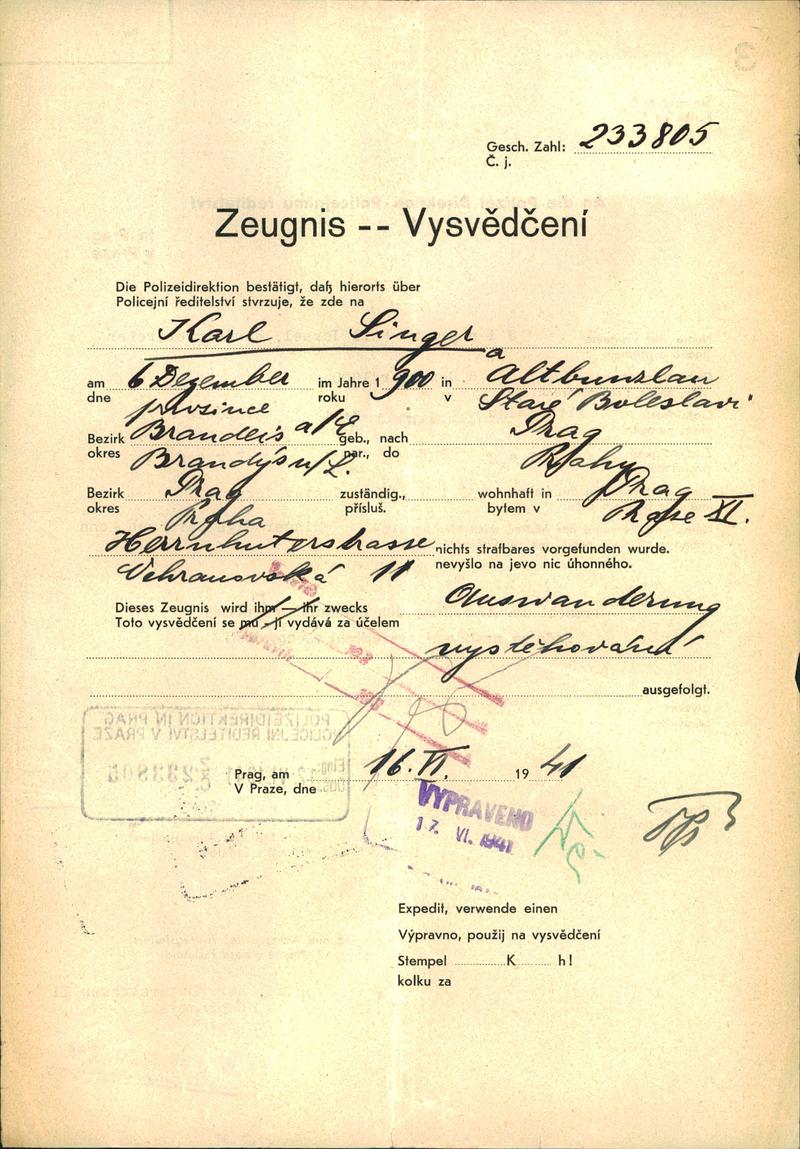 Gesch. Zahl: 233805
Č. j.
Zeugnis -- Vysvědčení
Die Polizeidirektion bestätigt, daß hierorts über
Policejní ředitelství stvrzuje, že zde na
Karl Singer
a
am 6 Dezember im Jahre 1900 in Altbunzlau
dne prosince roku v Staré Boleslavi
Bezirk Brandeis a/E geb., nach Prag
okres Brandýs n/L. nar., do Prahy
Bezirk Prag zuständig., wohnhaft in Prag
okres Praha přísluš. bytem v Praze XI.
Herrnhuterstrasse nichts strafbares vorgefunden wurde.
Ochranovská 11 nevyšlo na jevo nic úhonného.
Dieses Zeugnis wird ihm — ihr zwecks Auswanderung
Toto vysvědčení se mu - jí vydává za účelem
vystěhování
ausgefolgt.
POLIZEIDIREKTION IN PRAG
POLICEJNÍ ŘEDITELSTVÍ V PRAZE
233805
Prag, am 16. VI. 1941
V Praze, dne
VYPRAVENO
17. VI. 1941
Expedit, verwende einen
Výpravno, použij na vysvědčení
Stempel K h!
kolku za